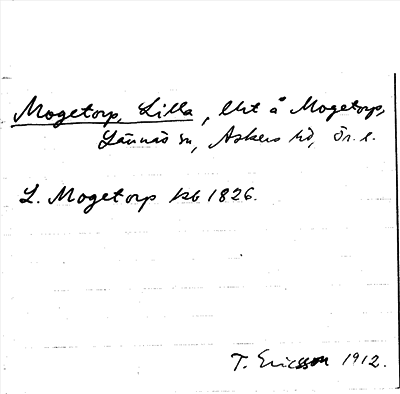 Mogetorp, Lilla, lht å Mogetorp,
Lännäs sn, Askers hd, Ör. l.
L. Mogetorp kb 1826.
T. Ericsson 1912.